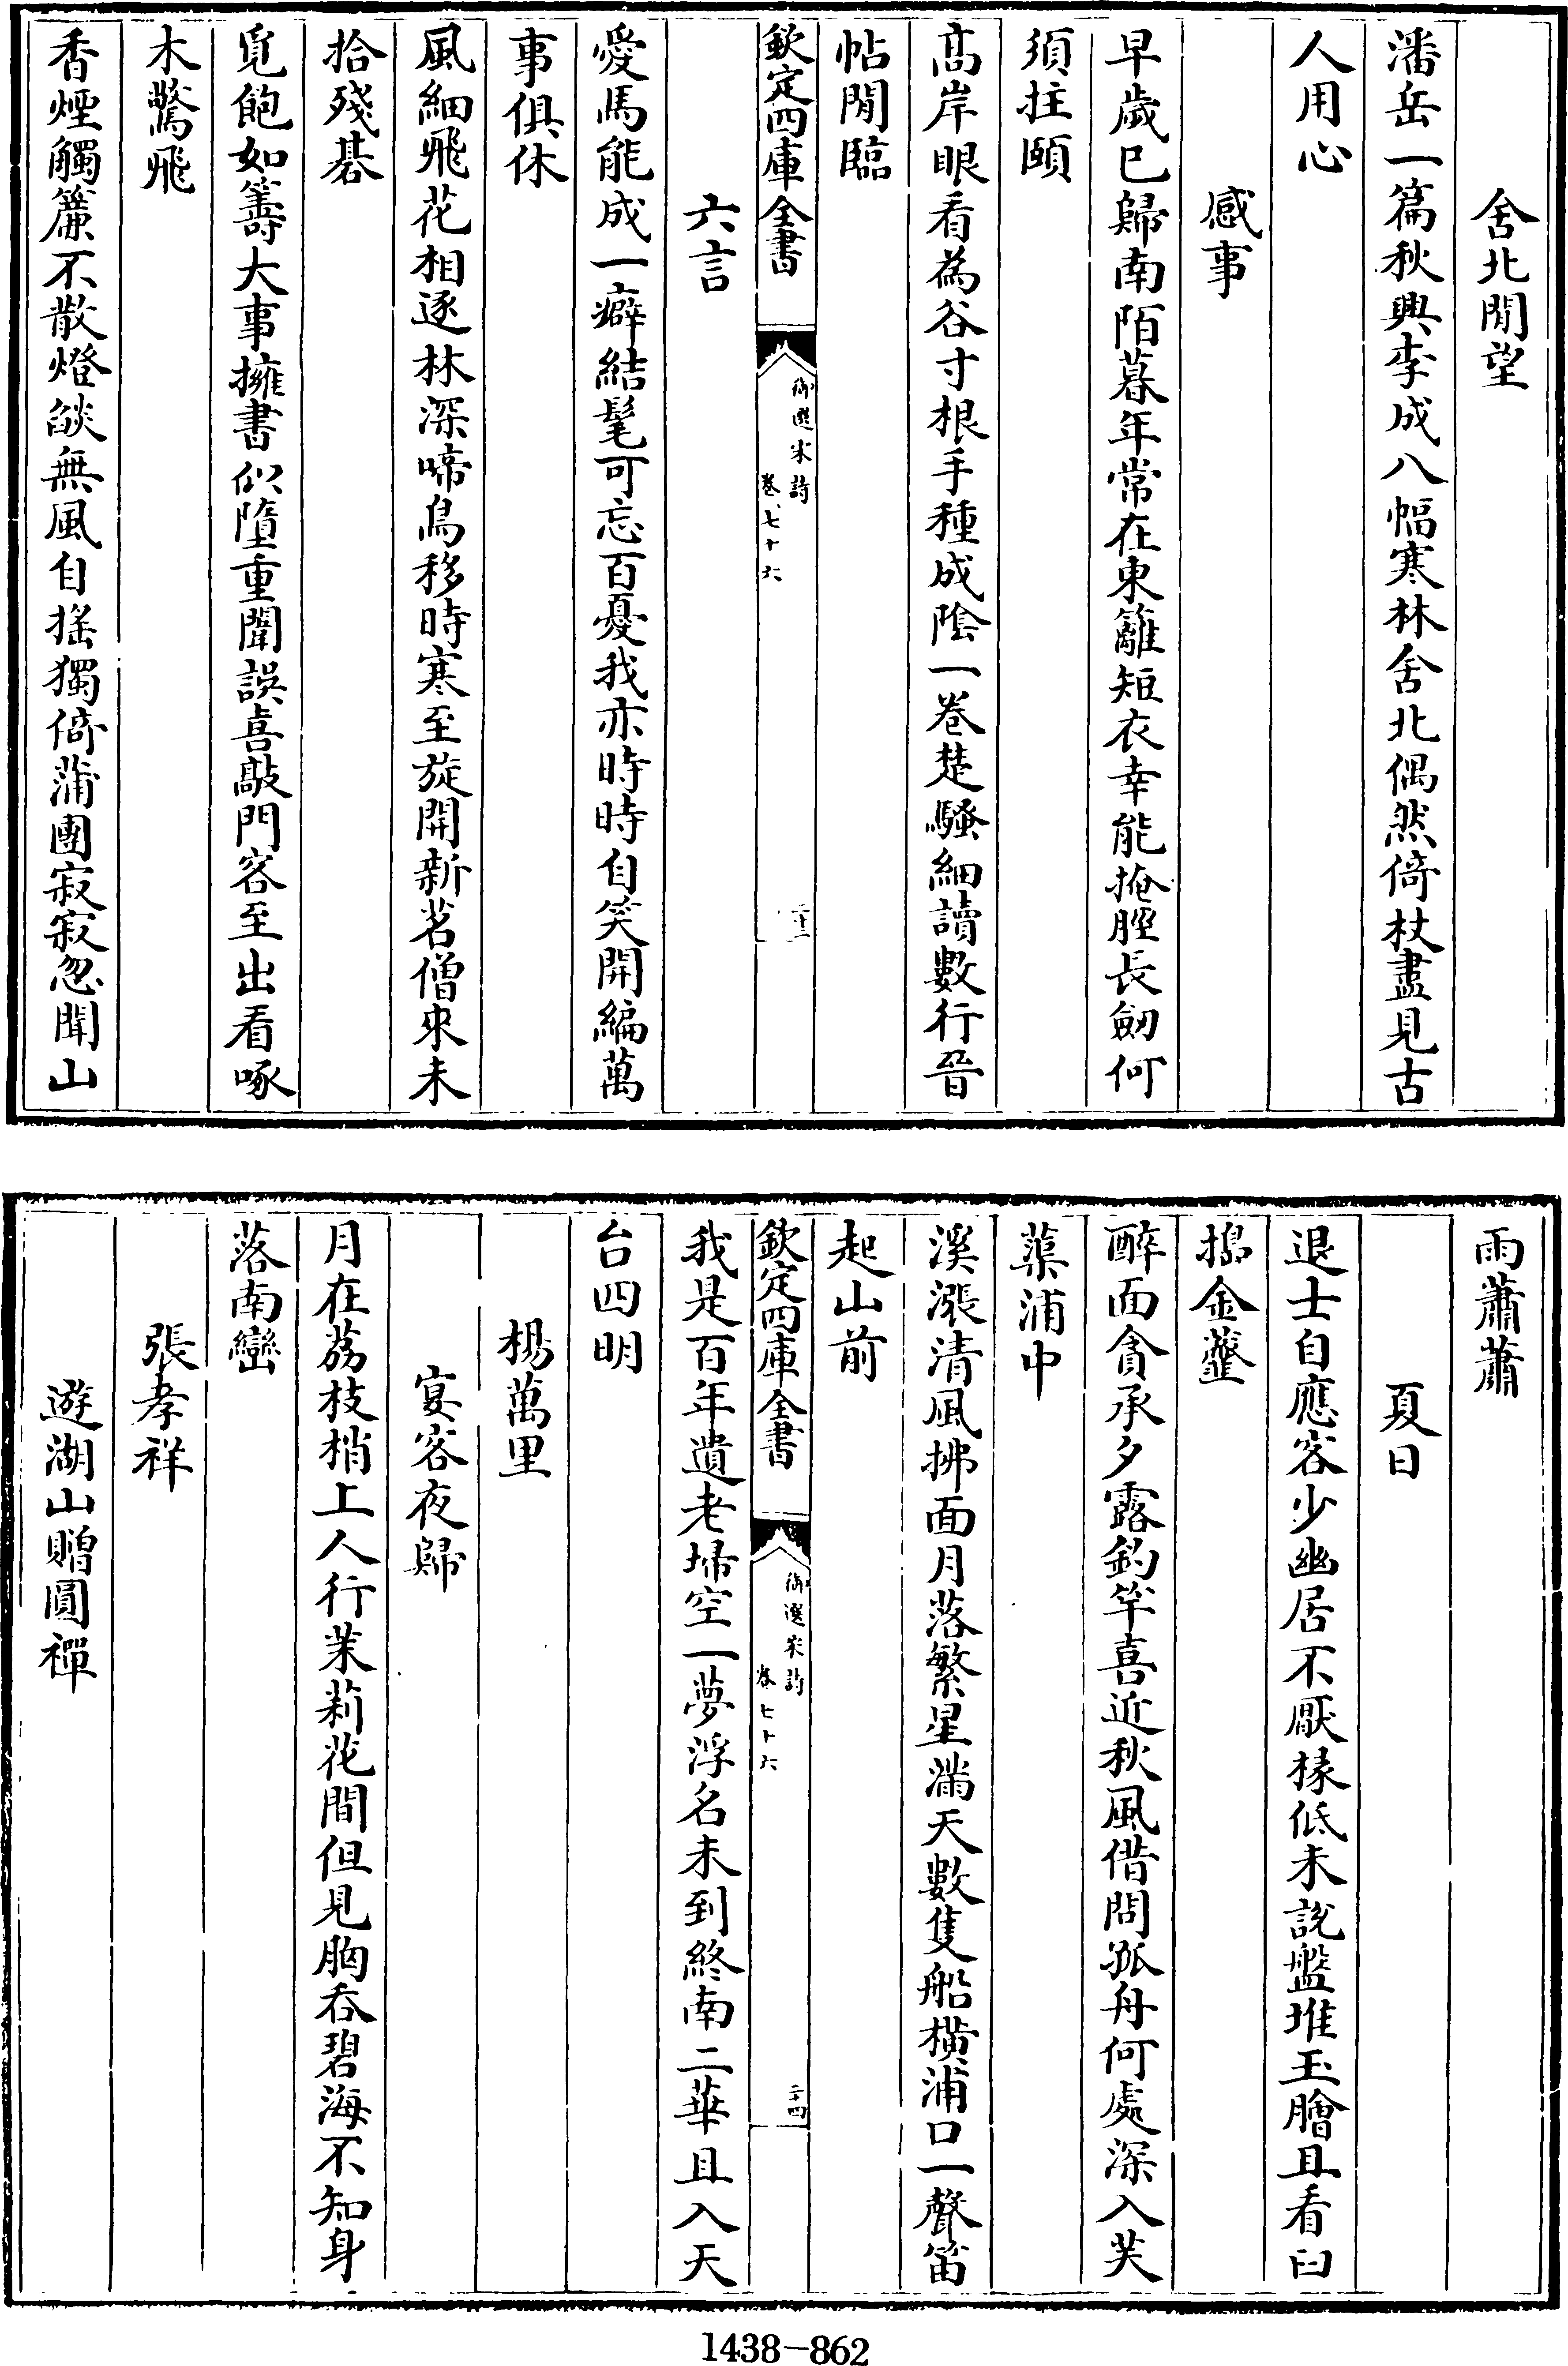 舍北閒望
潘岳一篇秋興李成八幅寒林舍北偶然倚杖盡見古
人用心
感事
早歲已歸南陌暮年常在東籬短衣幸能掩脛長劒何
須拄頤
高岸眼看為谷寸根手種成陰一卷楚騷細讀數行晉
帖閒臨
欽定四庫全書
御選宋詩
卷七十六
二十三
六言
愛馬能成一癖結髦可忘百憂我亦時時自笑開編萬
事俱休
風細飛花相逐林深啼鳥移時寒至旋開新茗僧來未
拾殘棊
覓飽如籌大事擁書似墮重闈誤喜敲門客至出看啄
木驚飛
香煙觸簾不散燈燄無風自搖獨倚蒲團寂寂忽聞山
雨蕭蕭
夏日
退士自應客少幽居不厭椽低未說盤堆玉膾且看臼
搗金虀
醉面貪承夕露釣竿喜近秋風借問孤舟何處深入芙
蕖浦中
溪漲清風拂面月落繁星滿天數隻船橫浦口一聲笛
起山前
欽定四庫全書
御選宋詩
卷七十六
二十四
我是百年遺老埽空一夢浮名未到終南二華且入天
台四明
楊萬里
宴客夜歸
月在荔枝梢上人行茉莉花間但見胸吞碧海不知身
落南巒
張孝祥
遊湖山贈圓禪
1438-862